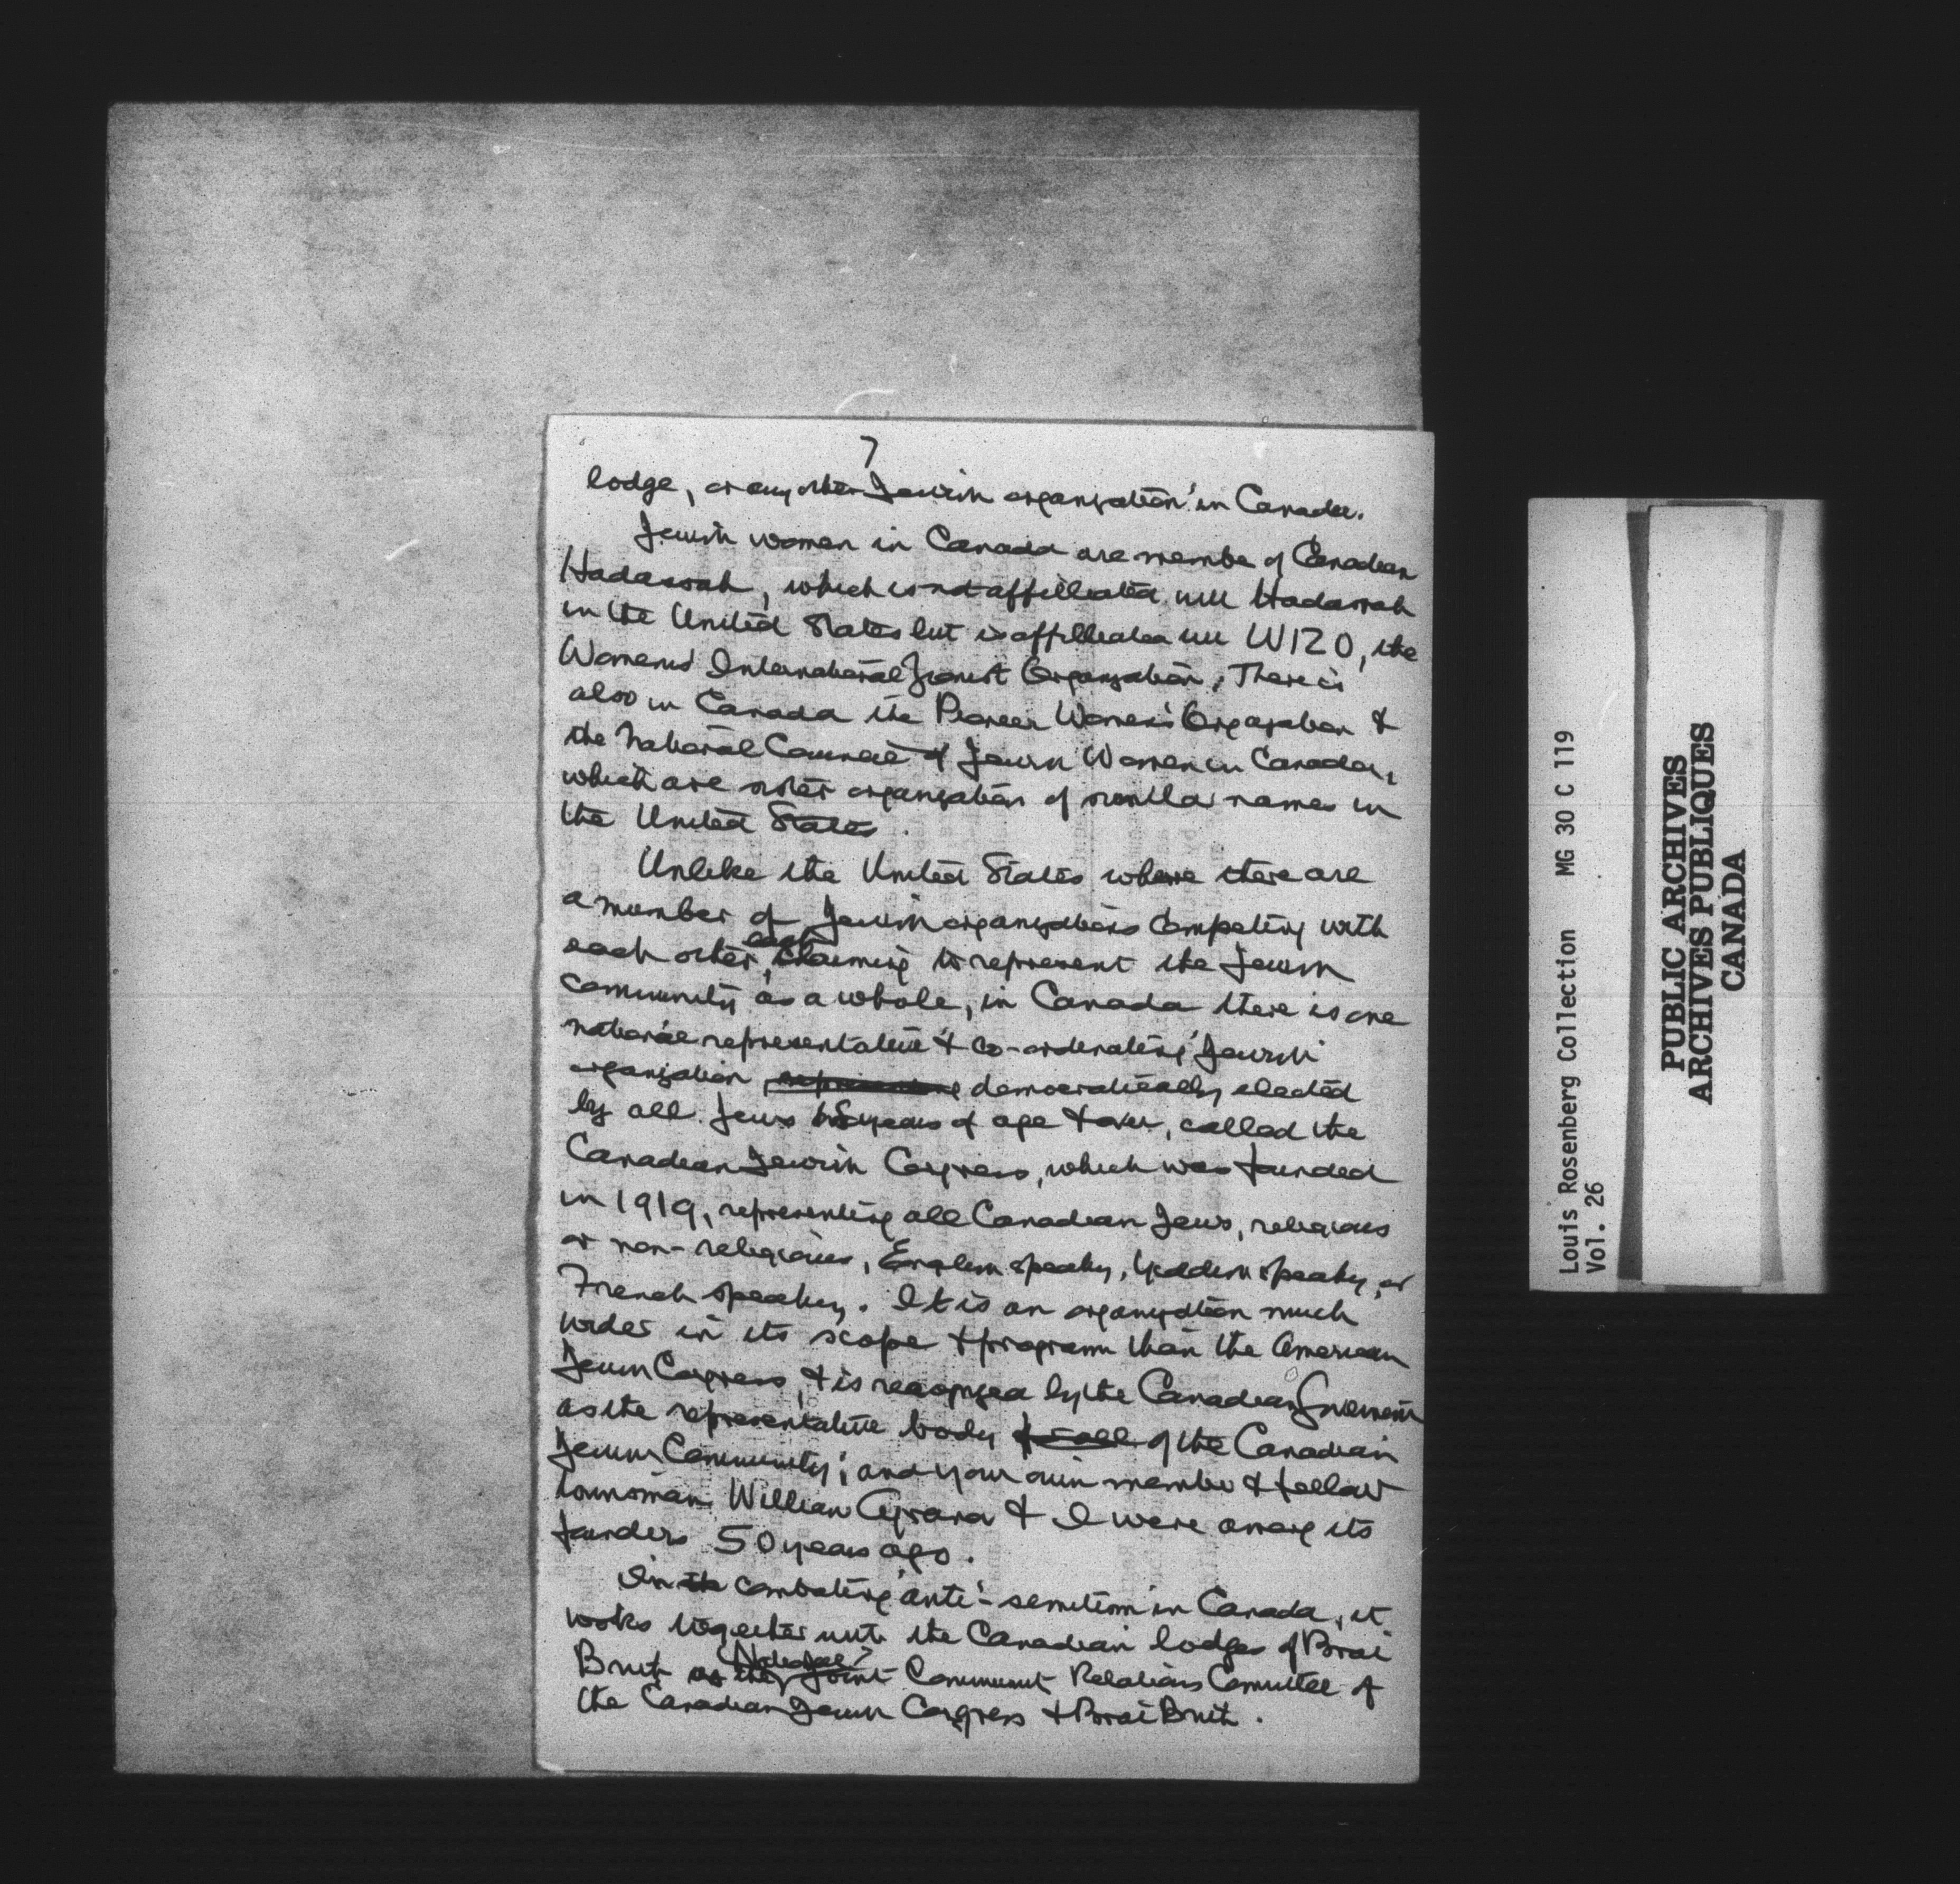 7
lodge, or any other Jewish organization in Canada.
Jewish women in Canada are membe of Canadian
Hadassah, which is not affilliated with Hadassah
in the United States but is affilliated with WIZO, the
Womens' International Zionist Organization, There is
also in Canada the Pioneer Women's Organization &
the National Council of Jewish Women in Canada,
which are sister organizations of similar names in
the United States.
Unlike the United States where there are
a number of Jewish organizations competing with
each other, each claiming to represent the Jewish
community as a whole, in Canada there is one
national representative & co-ordinating Jewish
organization, democratically elected
by all Jews 18 years of age & over, called the
Canadian Jewish Congress, which was founded
in 1919, representing all Canadian Jews, religious
or non-religious, English speaking, Yiddish speaking, or
French speaking. It is an organization much
wider in its scope & program than the American
Jewish Congress, & is recognized by the Canadian Government
as the representative body of the Canadian
Jewish Community; and your own member & fellow
townsman William & I were among its
founders 50 years ago.
In combating anti-semitism in Canada, it
works together with the Canadian lodges of Bnai
Brith as the Joint Community Relations Committee of
the Canadian Jewish Congress & Bnai Brith.
Louis Rosenberg Collection MG 30 C 119
Vol. 26
PUBLIC ARCHIVES
ARCHIVES PUBLIQUES
CANADA